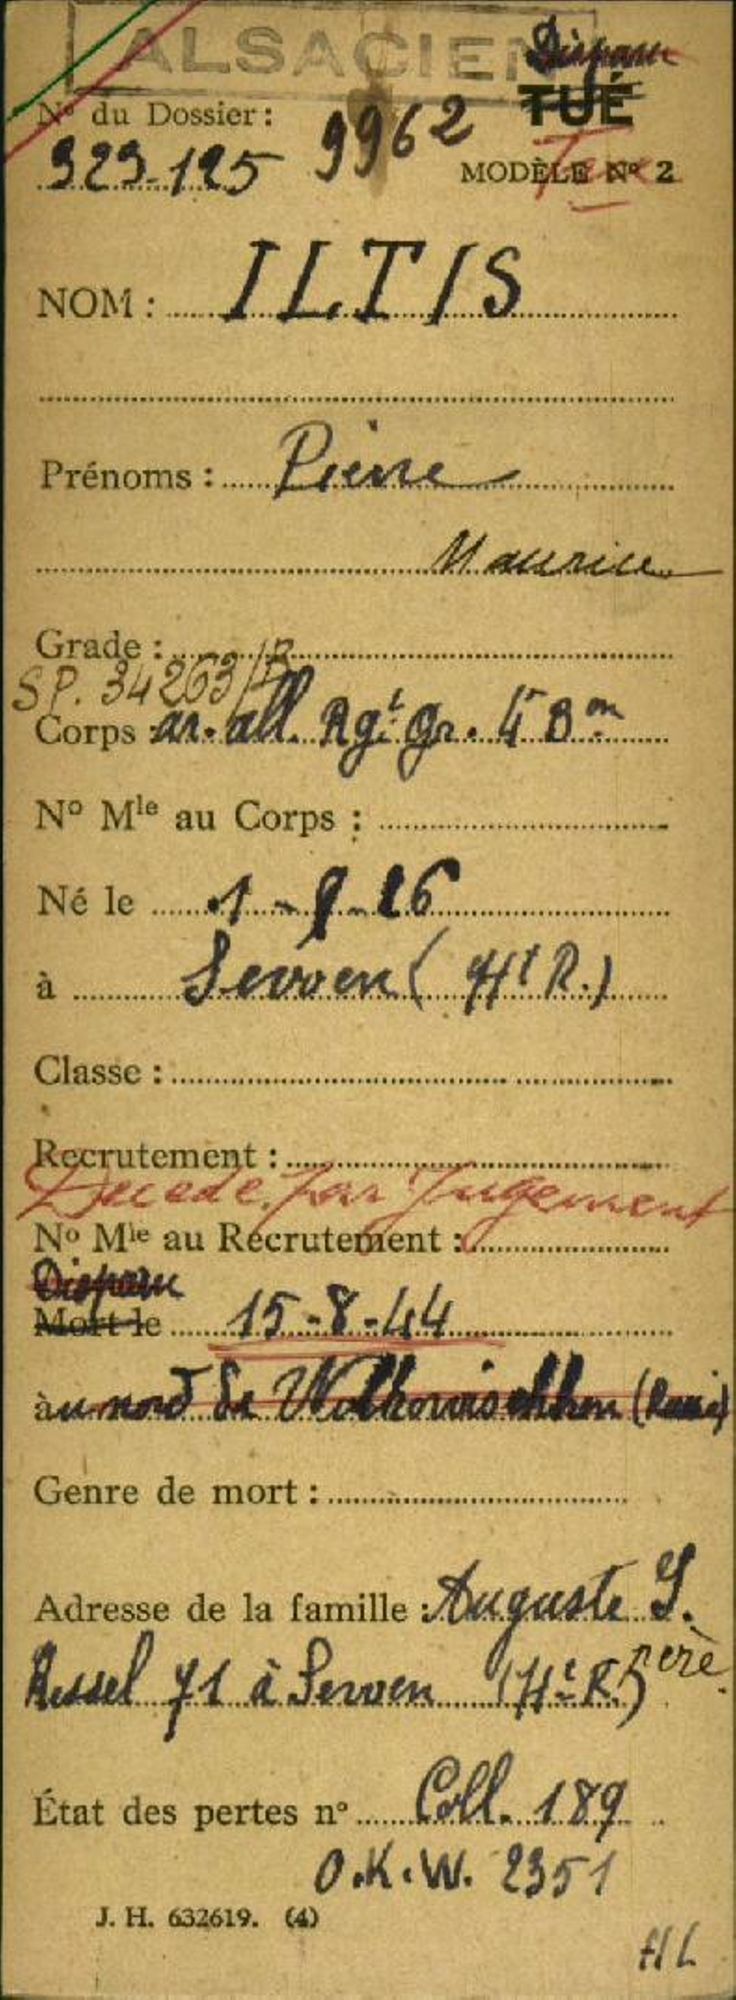 ALSACIEN
Disparu
TUÉ
N° du Dossier:
9962
929-125
MODÈLE N° 2
NOM : ILTIS
Prénoms : Pierre
Maurice
Grade :
SP. 34263/B
Corps : ar. all. Rgt. gr. 4 Bon
N° Mle au Corps :
Né le 1-9-26
à Sewen (Ht R.)
Classe :
Recrutement :
Décédé par Jugement
N° Mle au Recrutement :
Disparu
Mort le 15-8-44
au nord de (Russie)
Genre de mort :
Adresse de la famille : Auguste I.
père
71 à Sewen (Ht R.)
État des pertes n° Coll. 189
O.K.W. 2351
J. H. 632619. (4)
HL